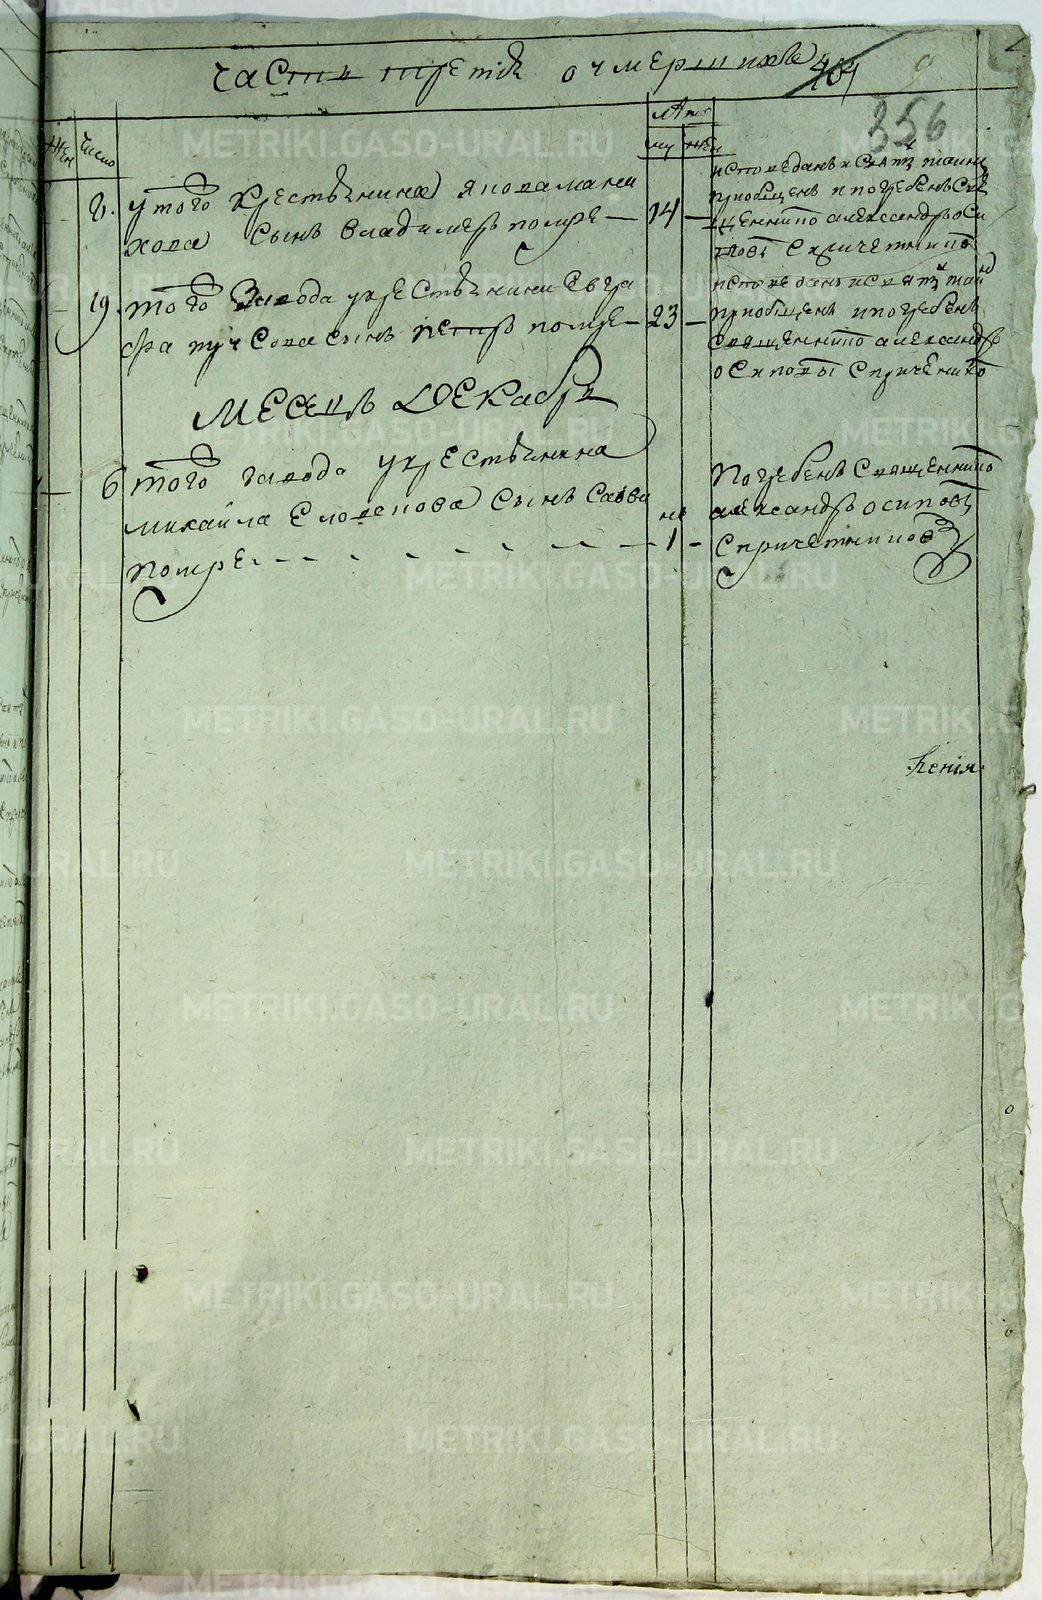 часть третія о умершихъ 404
356
Лѣта
жен число му жен
8. у того крестьянина якова мана
хова сынъ владимеръ помре — 14 —
исповеданъ и святы таины
приобщенъ и погребенъ свя
щеннико александръ оси
повы с причетнико
19. того завода у крестьянина евгра
фа сынъ петръ помре — 23 —
исповеданъ и святы таин
приобщенъ и погребенъ
священнико александръ
осиповы с причетнико
месецъ декабрь
6 того завода у крестьянина
михаила сынъ савви
помре — — — 1 —
погребенъ священнико
александръ осиповы
с причетникою
кенія
METRIKI.GASO-URAL.RU